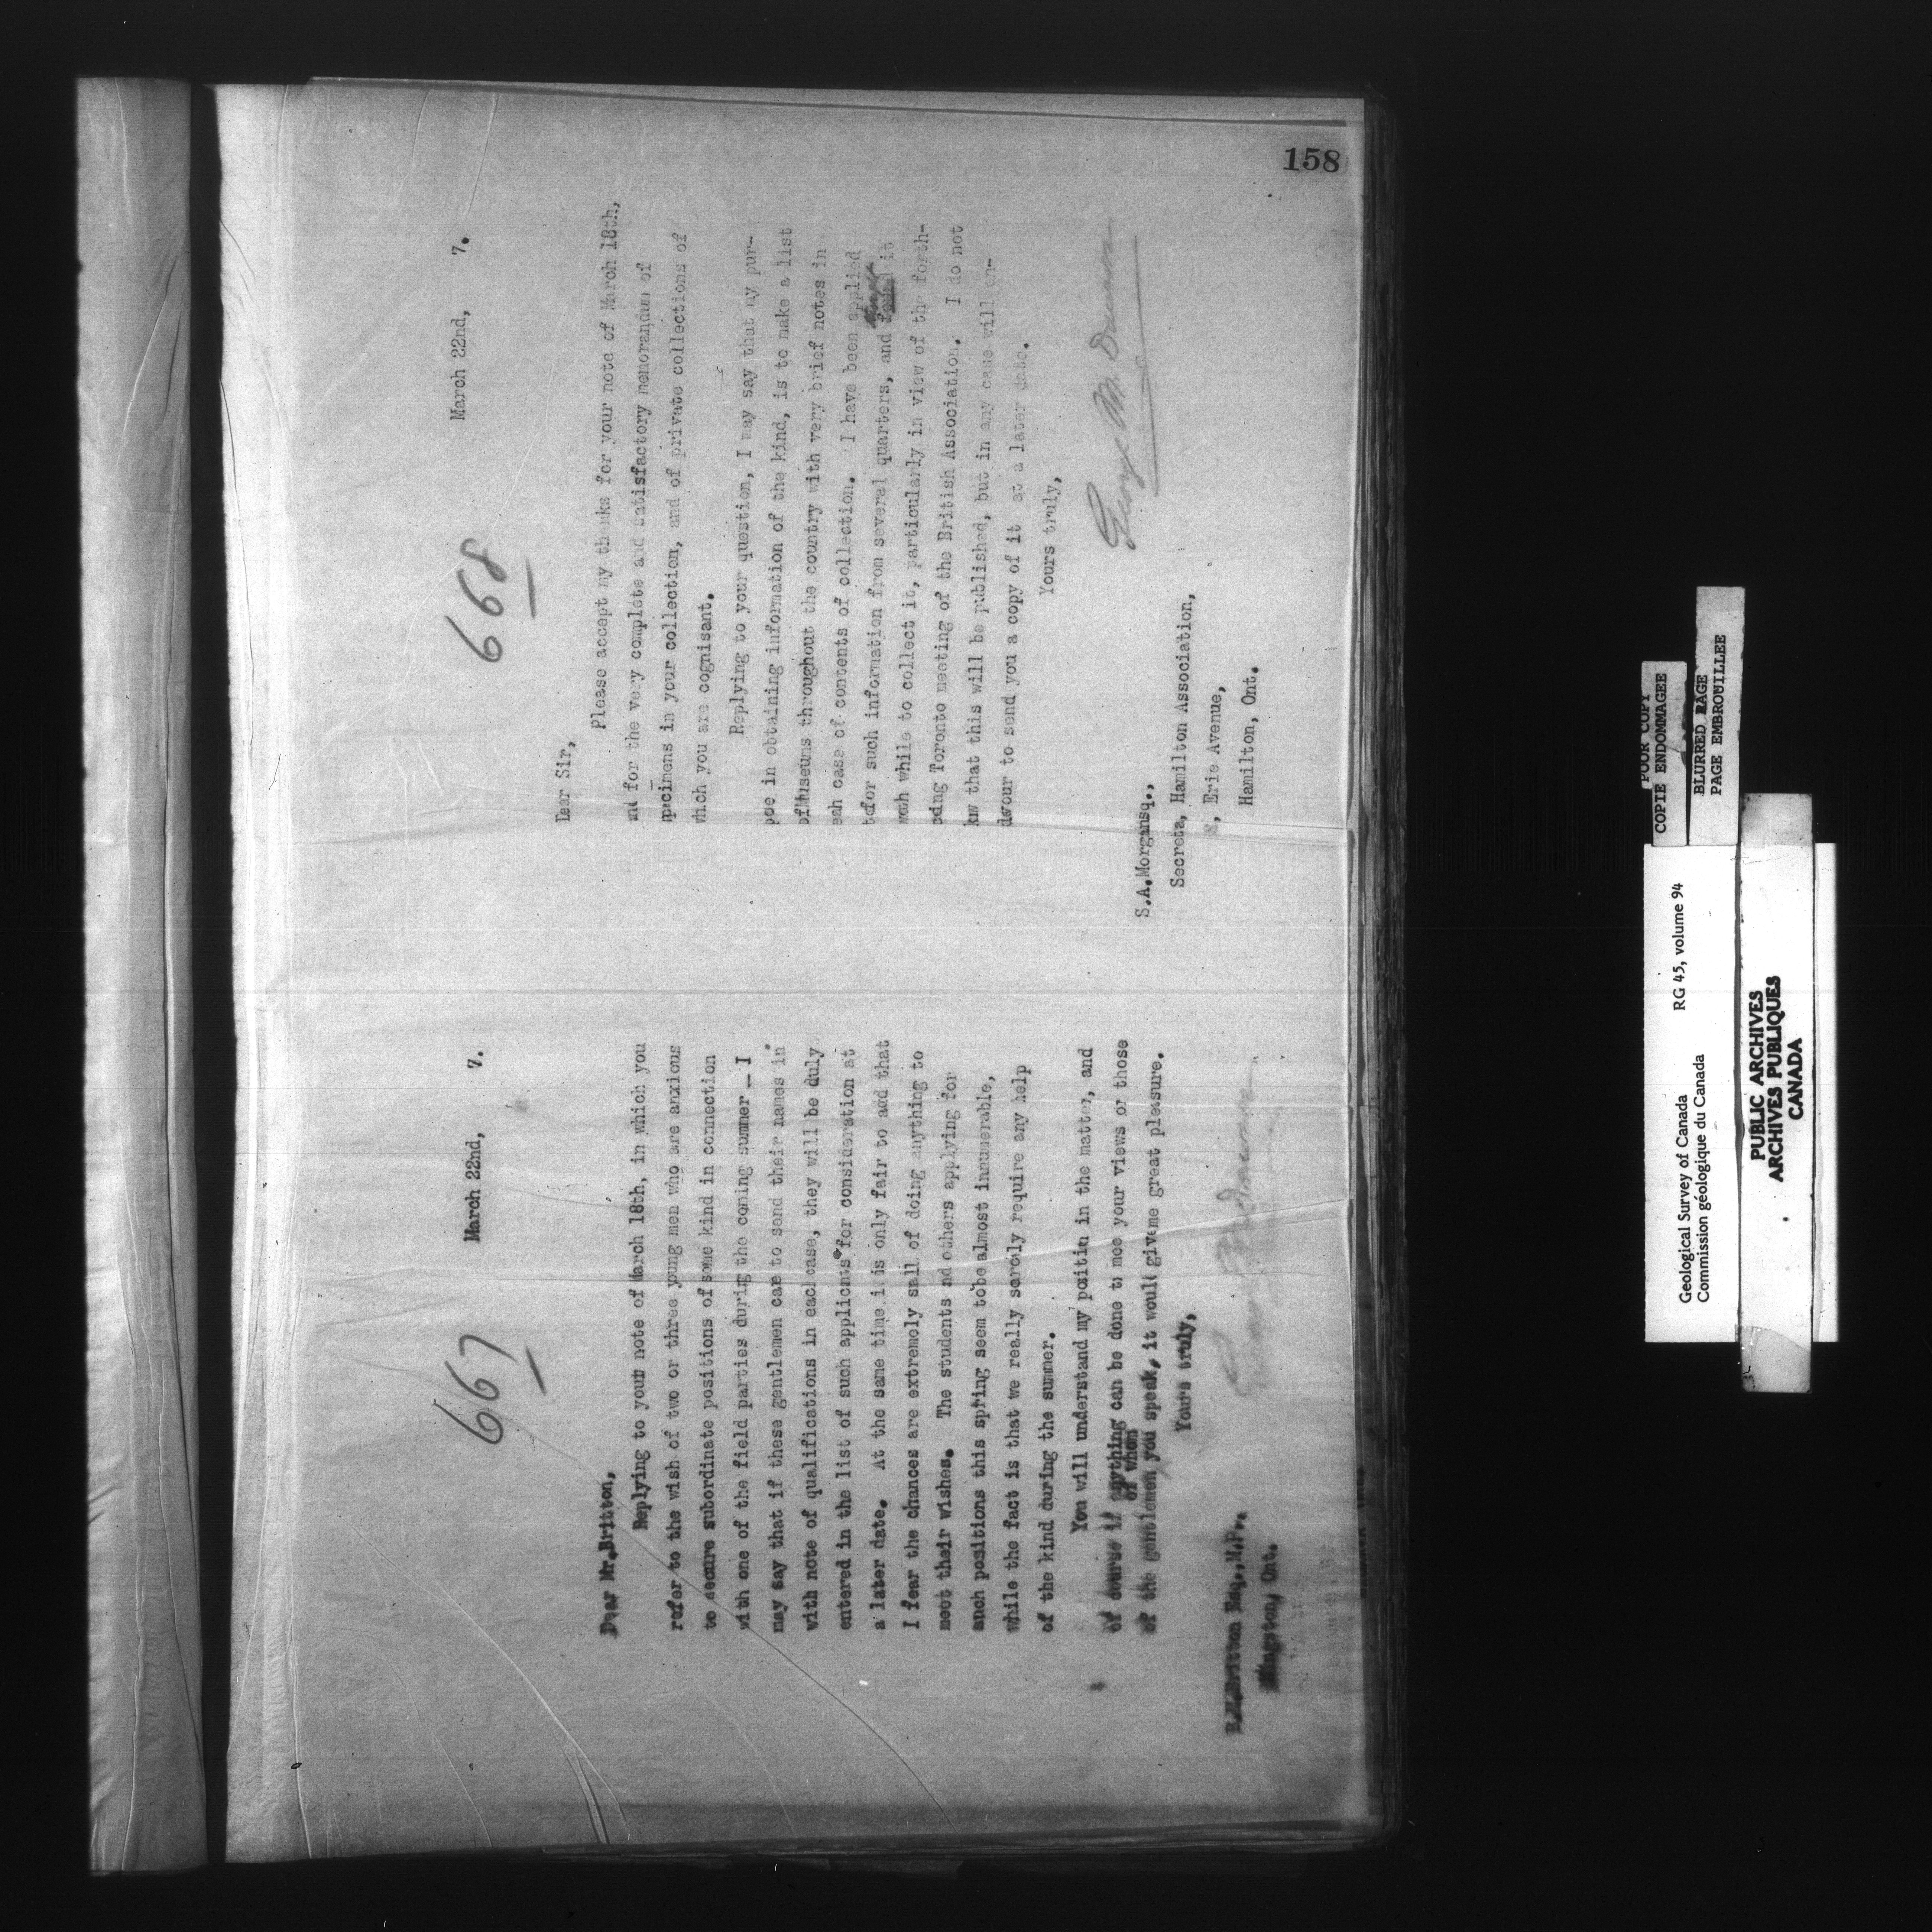 158
667
March 22nd, 7.
Dear Mr.Britton,
Replying to your note of March 18th, in which you
refer to the wish of two or three young men who are anxious
to secure subordinate positions of some kind in connection
with one of the field parties during the coming summer - I
may say that if these gentlemen care to send their names in
with note of qualifications in each case, they will be duly
entered in the list of such applicants for consideration at
a later date. At the same time it is only fair to add that
I fear the chances are extremely small of doing anything to
meet their wishes. The students and others applying for
such positions this spring seem to be almost innumerable,
while the fact is that we really scarcely require any help
of the kind during the summer.
You will understand my position in the matter, and
of course if anything can be done to meet your views or those
of whom
of the gentlemen you speak, it would give me great pleasure.
Yours truly,
B.M.Britton Esq.,M.P.,
Kingston, Ont.
668
March 22nd, 7.
Dear Sir,
Please accept my thanks for your note of March 18th,
and for the very complete and satisfactory memorandum of
specimens in your collection, and of private collections of
which you are cognisant.
Replying to your question, I may say that my pur-
pose in obtaining information of the kind, is to make a list
of Museums throughout the country with very brief notes in
each case of contents of collection. I have been applied
to for such information from several quarters, and it
worth while to collect it, particularly in view of the forth-
coming Toronto meeting of the British Association. I do not
know that this will be published, but in any case will en-
devour to send you a copy of it at a later date.
Yours truly,
George M. Dawson
S.A.Morgan Esq.,
Secreta, Hamilton Association,
Erie Avenue,
Hamilton, Ont.
POOR COPY
COPIE ENDOMMAGEE
BLURED PAGE
PAGE EMBROUILLEE
Geological Survey of Canada RG 45, volume 94
Commission géologique du Canada
PUBLIC ARCHIVES
ARCHIVES PUBLIQUES
CANADA